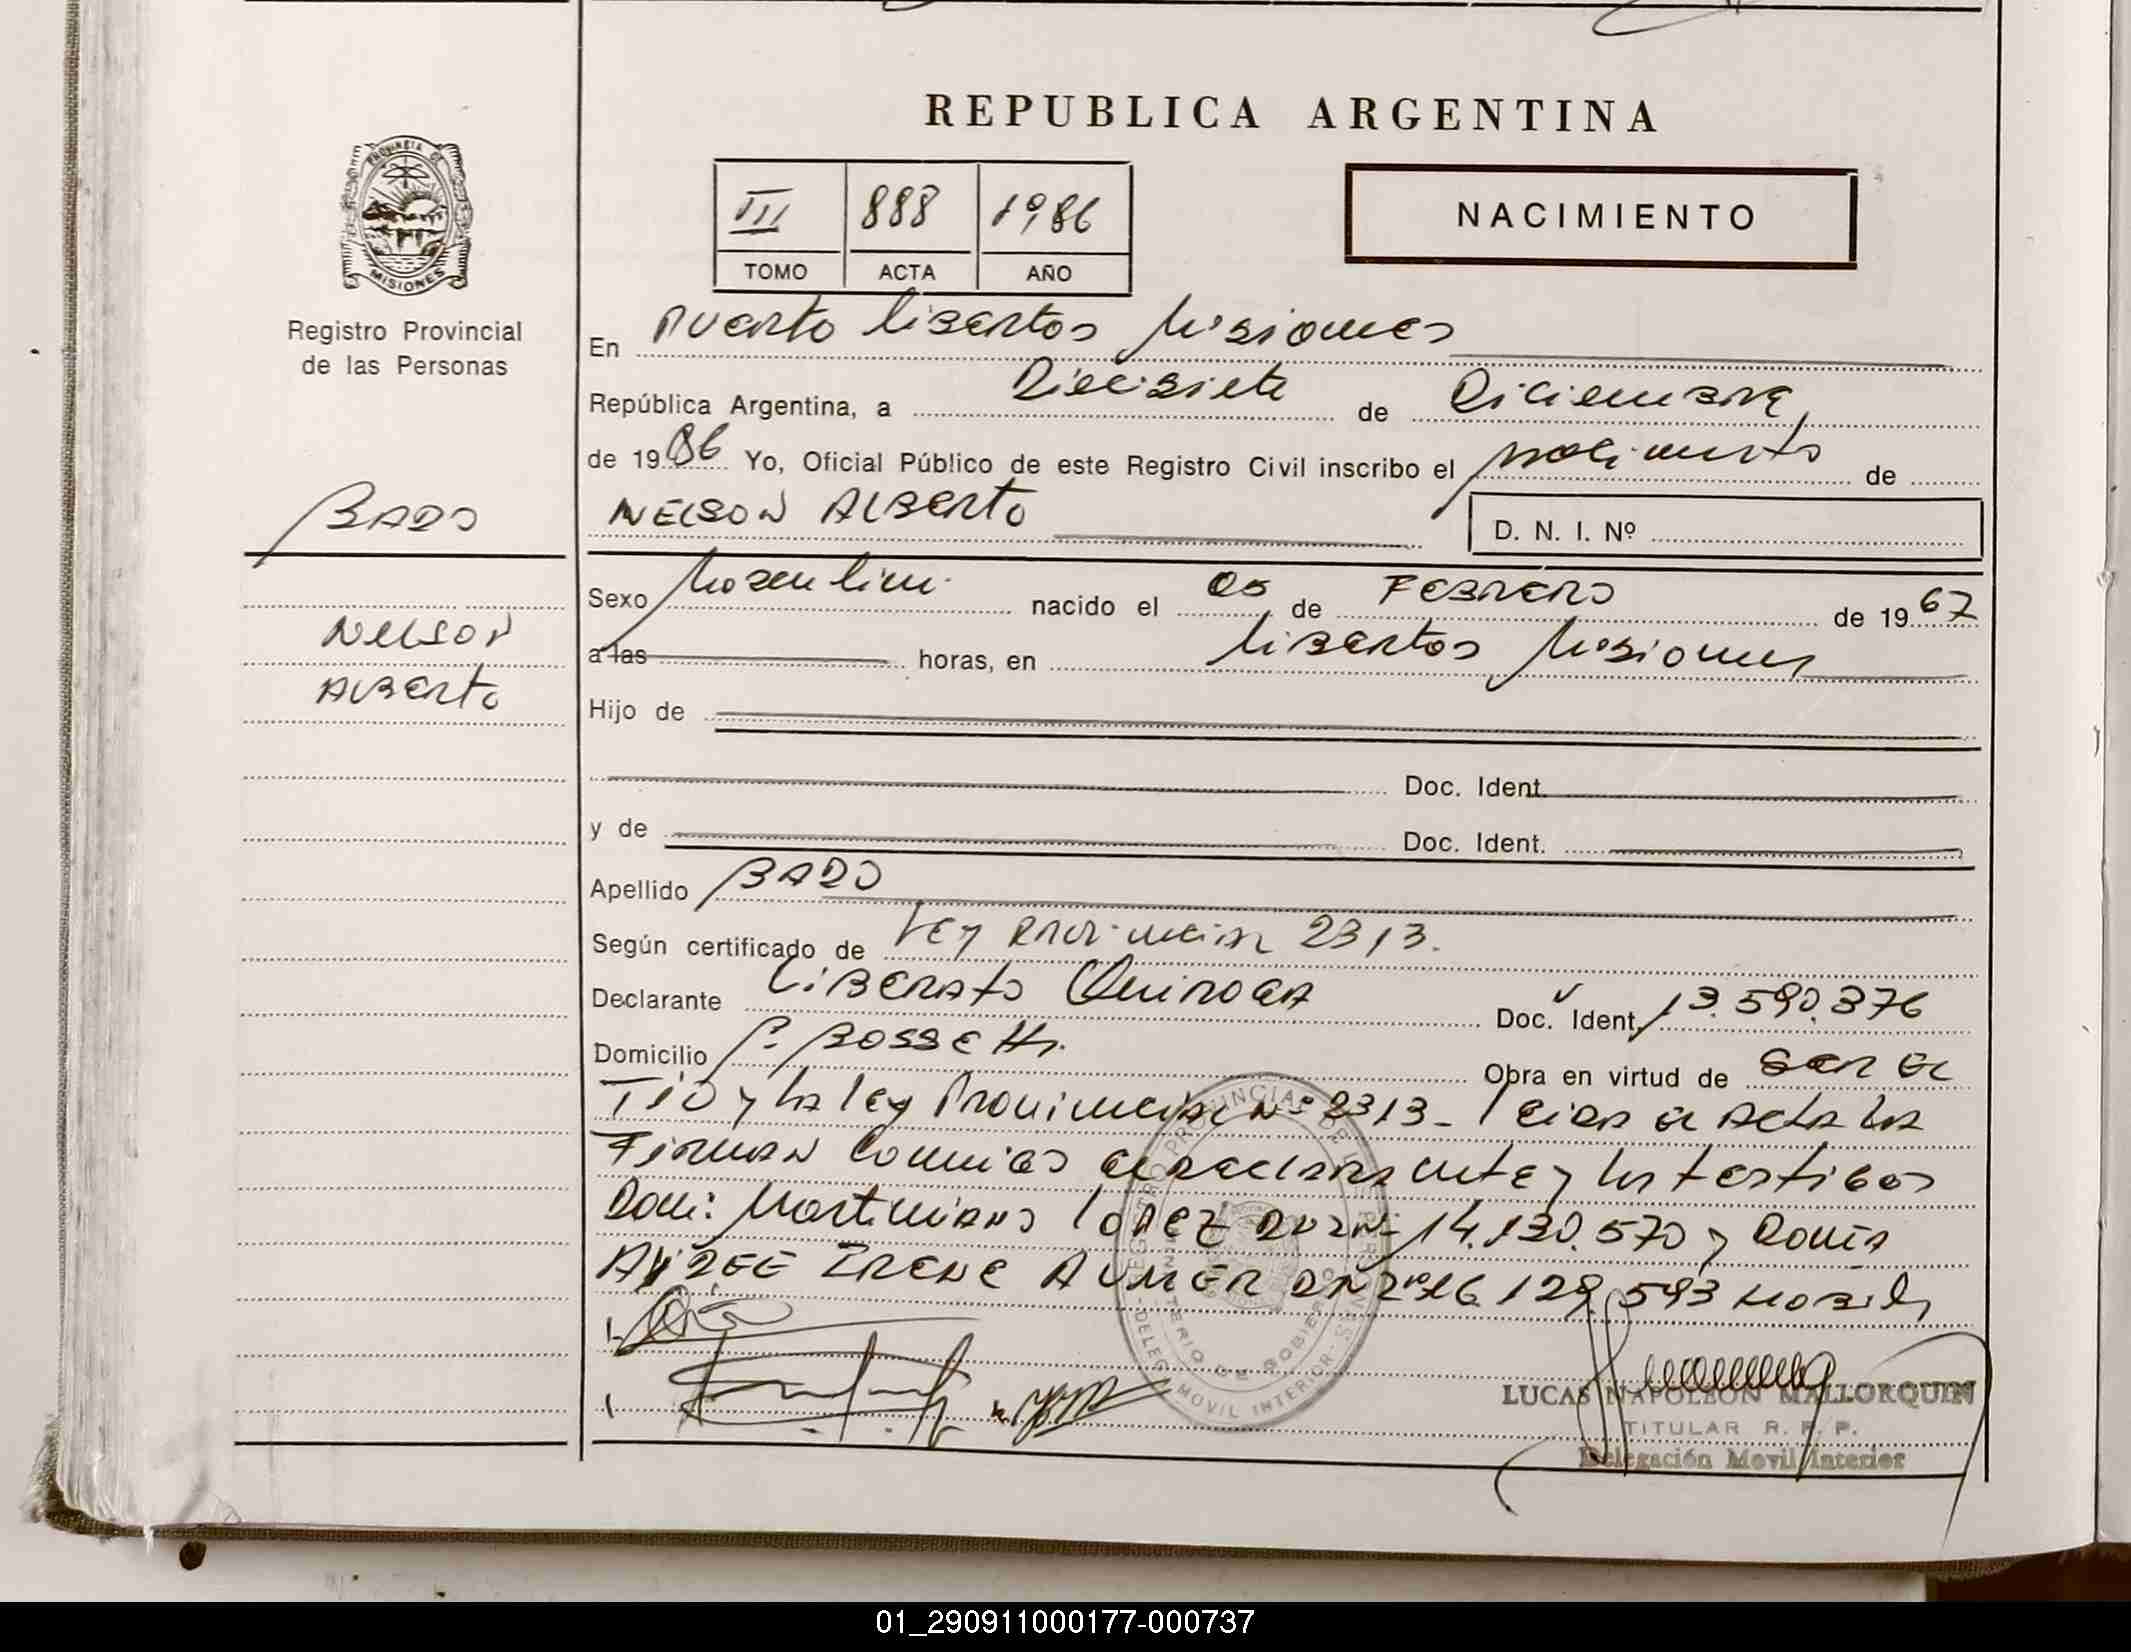 REPUBLICA ARGENTINA
PROVINCIA DE MISIONES
Registro Provincial
de las Personas
III 888 1986
TOMO ACTA AÑO
NACIMIENTO
En Puerto Libertad Misiones
República Argentina, a Diecisiete de Diciembre
de 1986 Yo, Oficial Público de este Registro Civil inscribo el nacimiento de
BADO
NELSON ALBERTO
D. N. I. Nº
Sexo Masculino nacido el 05 de FEBRERO de 1967
NELSON
a las horas, en Libertad Misiones
ALBERTO
Hijo de
Doc. Ident.
y de Doc. Ident.
Apellido BADO
Según certificado de Ley Provincial 2313.
Declarante LIBERATO QUIROGA Doc. Ident. 13.590.376
Domicilio P. BOSSETTI. Obra en virtud de SER EL
TIO y la ley Provincial Nº 2313- Leida el Acta la
Firman conmigo el declarante y los testigos
Don: Martiniano LOPEZ DNI Nº 14.130.570 y Doña
AYDEE IRENE DNI Nº 16.129.593
REGISTRO PROVINCIAL DE LAS PERSONAS
MINISTERIO DE GOBIERNO
-DELEG. MOVIL INTERIOR-
LUCAS NAPOLEON MALLORQUIN
TITULAR R. P. P.
Delegación Movil Interior
01_290911000177-000737